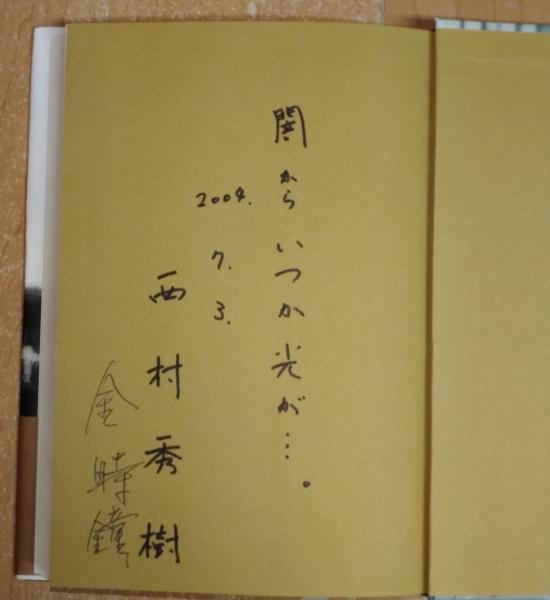 闇からいつか光が…。
2004.
7.
3.
西村秀樹
金時鐘